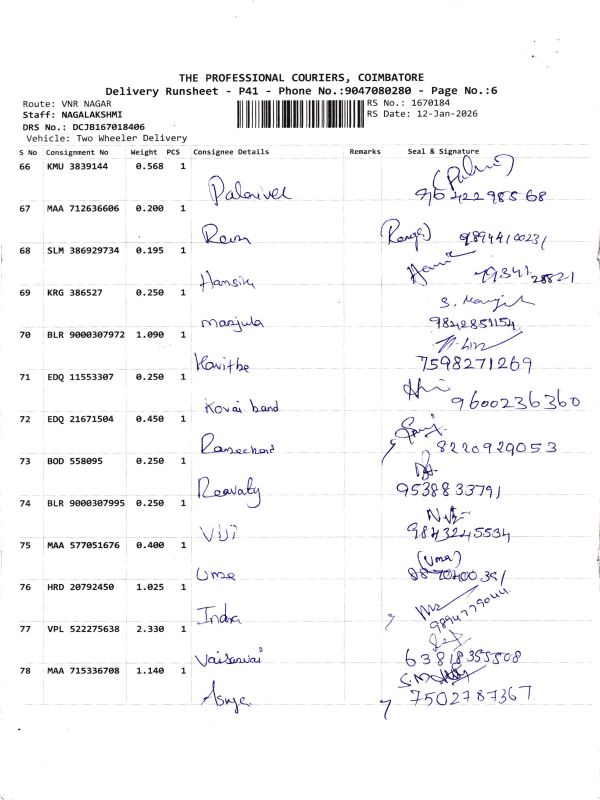 THE PROFESSIONAL COURIERS, COIMBATORE
Delivery Runsheet - P41 - Phone No.:9047080280 - Page No.:6
Route: VNR NAGAR RS No.: 1670184
Staff: NAGALAKSHMI RS Date: 12-Jan-2026
DRS No.: DCJB167018406
Vehicle: Two Wheeler Delivery
S No Consignment No Weight PCS Consignee Details Remarks Seal & Signature
66 KMU 3839144 0.568 1
Palanivel
67 MAA 712636606 0.200 1
68 SLM 386929734 0.195 1
69 KRG 386527 0.250 1
manjula 9842851154
70 BLR 9000307972 1.090 1
Kavitha 7598271269
71 EDQ 11553307 0.250 1
Kovai band 9600236360
72 EDQ 21671504 0.450 1
8220929053
73 BOD 558095 0.250 1
9538833791
74 BLR 9000307995 0.250 1
Viji 9843245534
75 MAA 577051676 0.400 1
(Uma)
Uma
76 HRD 20792450 1.025 1
Indra 9894779044
77 VPL 522275638 2.330 1
78 MAA 715336708 1.140 1
7502787367